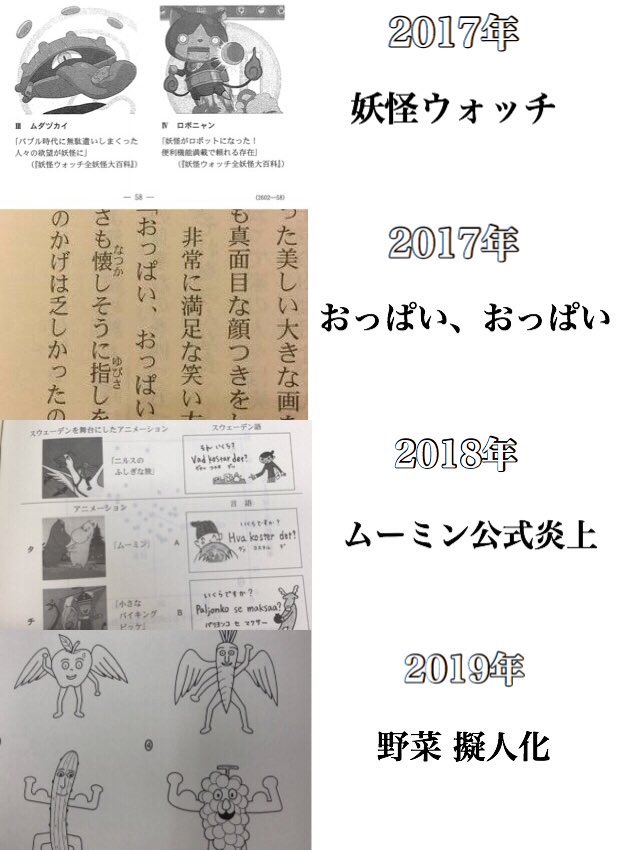 2017年
妖怪ウォッチ
Ⅲ ムダヅカイ
「バブル時代に無駄遣いしまくった
人々の欲望が妖怪に」
(『妖怪ウォッチ全妖怪大百科』)
Ⅳ ロボニャン
「妖怪がロボットになった!
便利機能満載で頼れる存在」
(『妖怪ウォッチ全妖怪大百科』)
— 58 —
(2602—58)
2017年
おっぱい、おっぱい
った美しい大きな画
も真面目な顔つきをし
非常に満足な笑い
「おっぱい、おっぱい
さも懐しそうに指しを
なつか
ゆびさ
のかげは乏しかったの
2018年
ムーミン公式炎上
スウェーデンを舞台にしたアニメーション
スウェーデン語
『ニルスの
ふしぎな旅』
いくら?
Vad kostar det?
アニメーション
言語
タ
『ムーミン』
A
いくらですか?
Hva koster det?
チ
『小さな
バイキング
ビッケ』
B
いくらですか?
Paljonko se maksaa?
パリヨンコ セ マクサー
2019年
野菜 擬人化
④